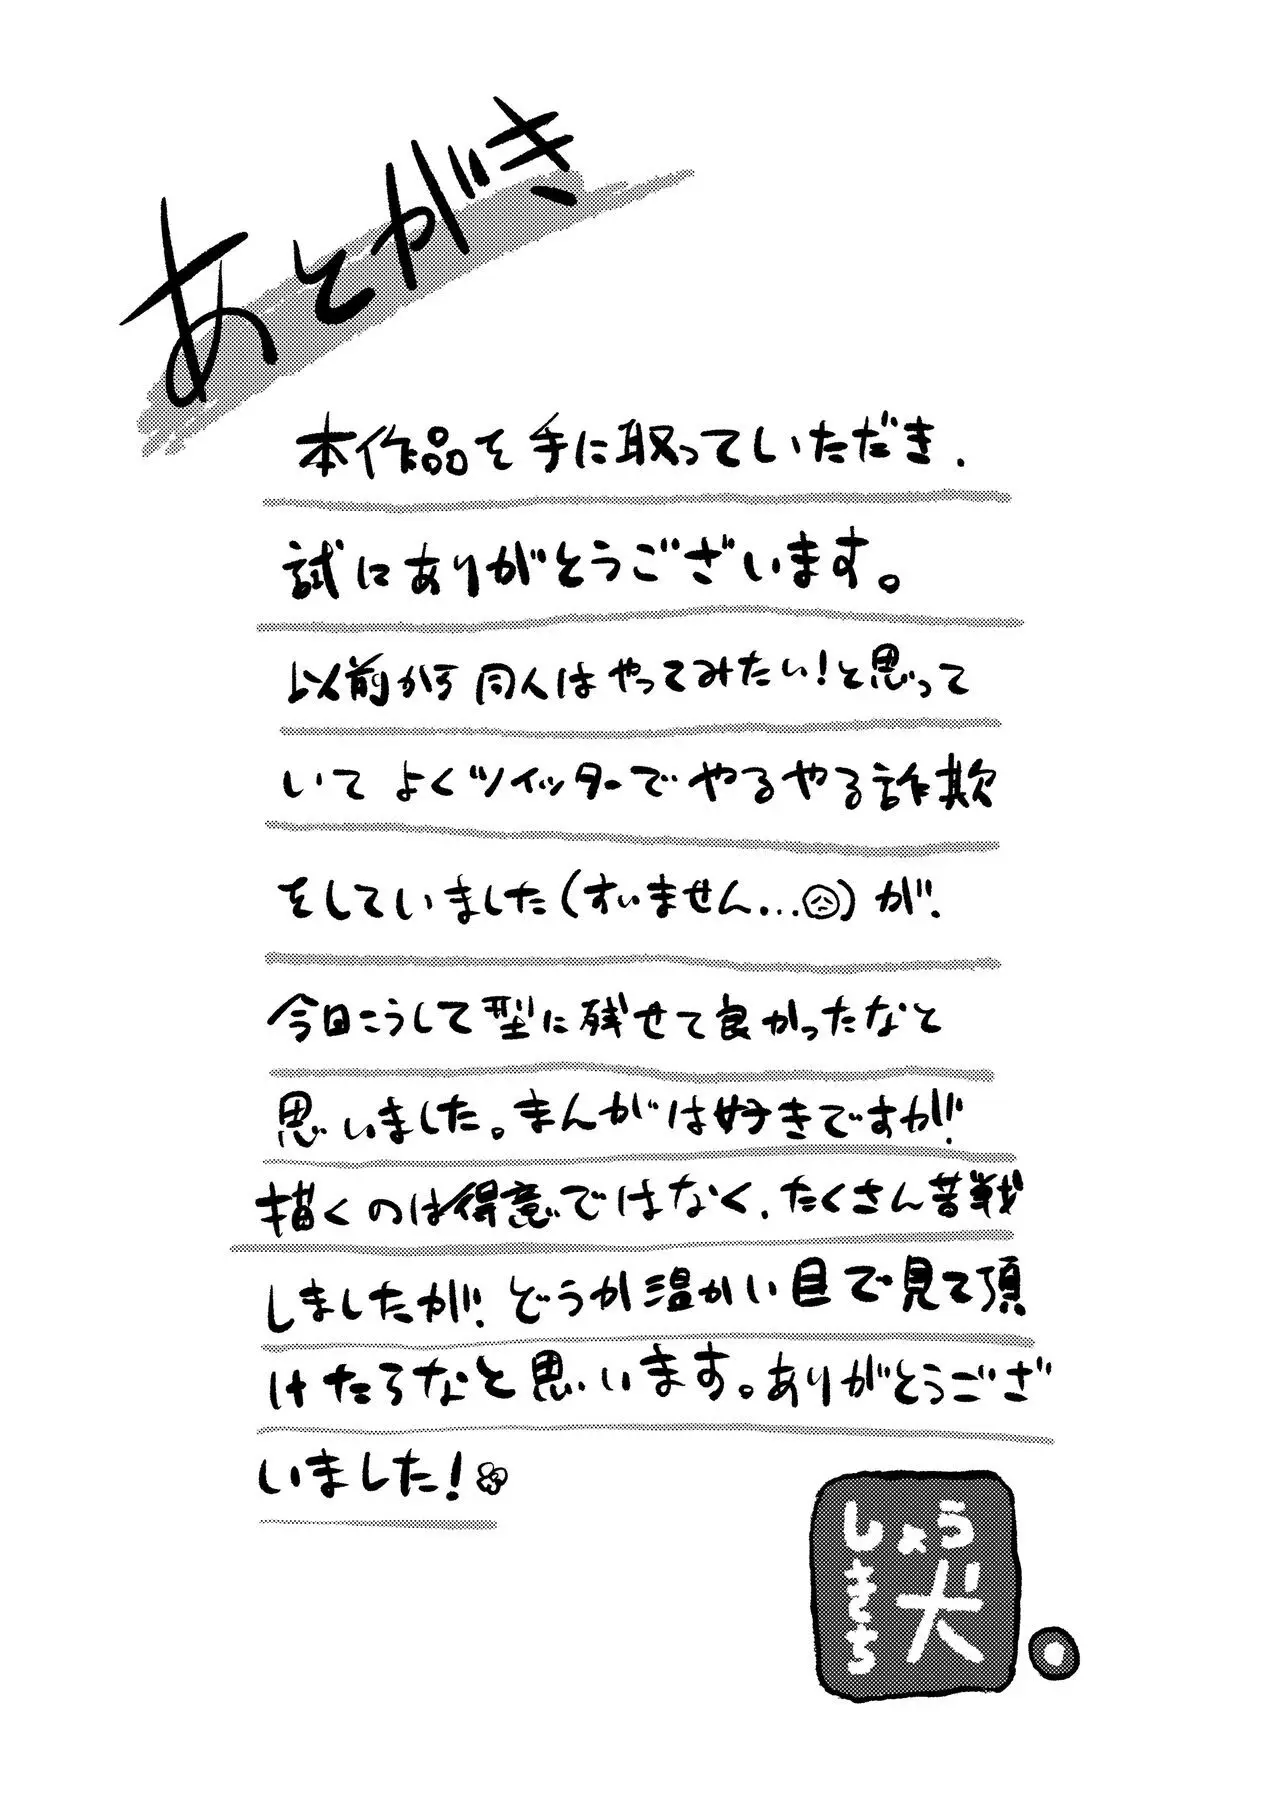 あとがき
本作品を手に取っていただき、
試にありがとうございます。
以前から同人はやってみたい!と思って
いてよくツイッターでやるやる詐欺
をしていました(すいません...)が、
今回こうして型に残せて良かったなと
思いました。まんがは好きですが、
描くのは得意ではなく、たくさん苦戦
しましたが、どうか温かい目で見て頂
けたらなと思います。ありがとうござ
いました!
しょう
きち
犬